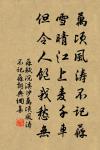 萬頃風濤不記蘇
雪晴江上麥千車
但令人飽我愁無
蘇軾浣溪沙萬頃風濤
不記蘇詞典網集